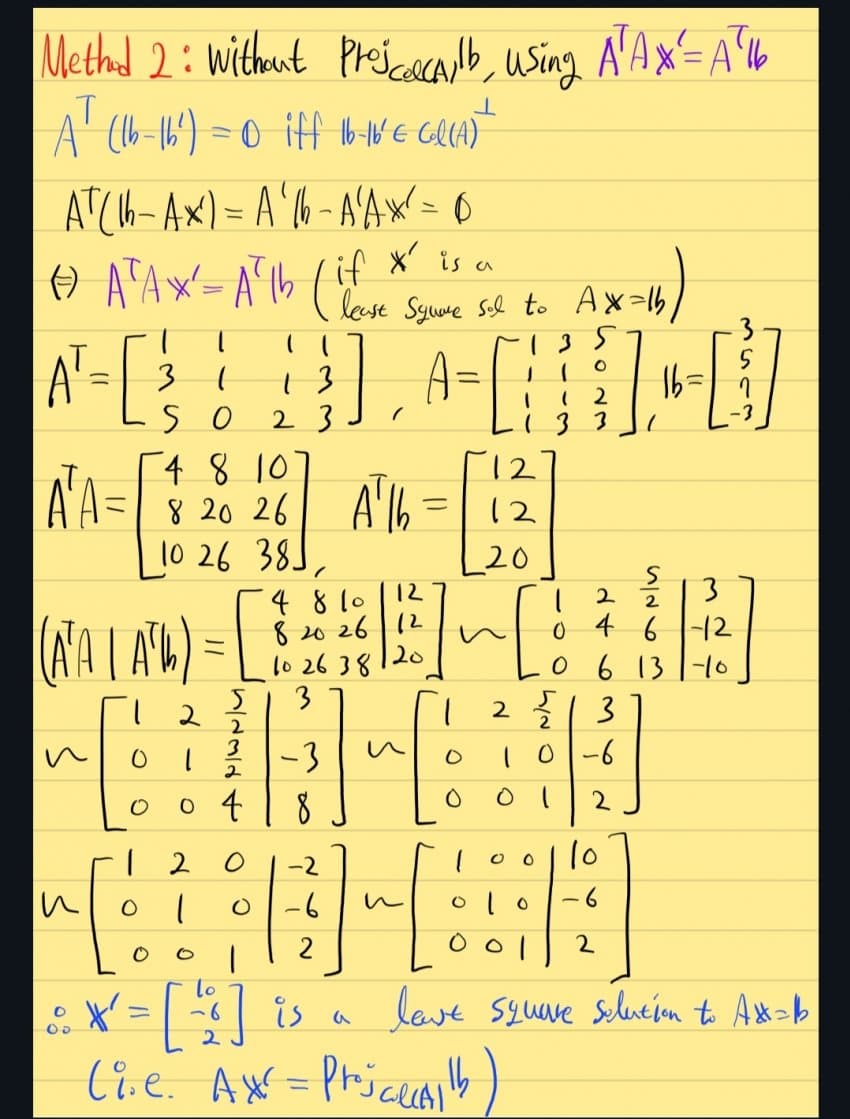 Method 2: Without Proj_Col(A) 𝕓, using AᵀA𝕩′ = Aᵀ𝕓
Aᵀ(𝕓-𝕓′) = 0 iff 𝕓-𝕓′ ∈ Col(A)^⊥
Aᵀ(𝕓-A𝕩′) = A'𝕓 - A'A𝕩′ = 0
⇔ AᵀA𝕩′ = Aᵀ𝕓 (if 𝕩′ is a
least square sol to A𝕩=𝕓)
Aᵀ = [1 1 1 1; 3 1 1 3; 5 0 2 3], A = [1 3 5; 1 1 0; 1 1 2; 1 3 3], 𝕓 = [3; 5; 7; -3]
AᵀA = [4 8 10; 8 20 26; 10 26 38], Aᵀ𝕓 = [12; 12; 20]
(AᵀA | Aᵀ𝕓) = [4 8 10 | 12; 8 20 26 | 12; 10 26 38 | 20] ~ [1 2 5/2 | 3; 0 4 6 | -12; 0 6 13 | -10]
~ [1 2 5/2 | 3; 0 1 3/2 | -3; 0 0 4 | 8] ~ [1 2 5/2 | 3; 0 1 0 | -6; 0 0 1 | 2]
~ [1 2 0 | -2; 0 1 0 | -6; 0 0 1 | 2] ~ [1 0 0 | 10; 0 1 0 | -6; 0 0 1 | 2]
∴ 𝕩′ = [10; -6; 2] is a least square solution to A𝕩=b
(i.e. A𝕩′ = Proj_Col(A) 𝕓)